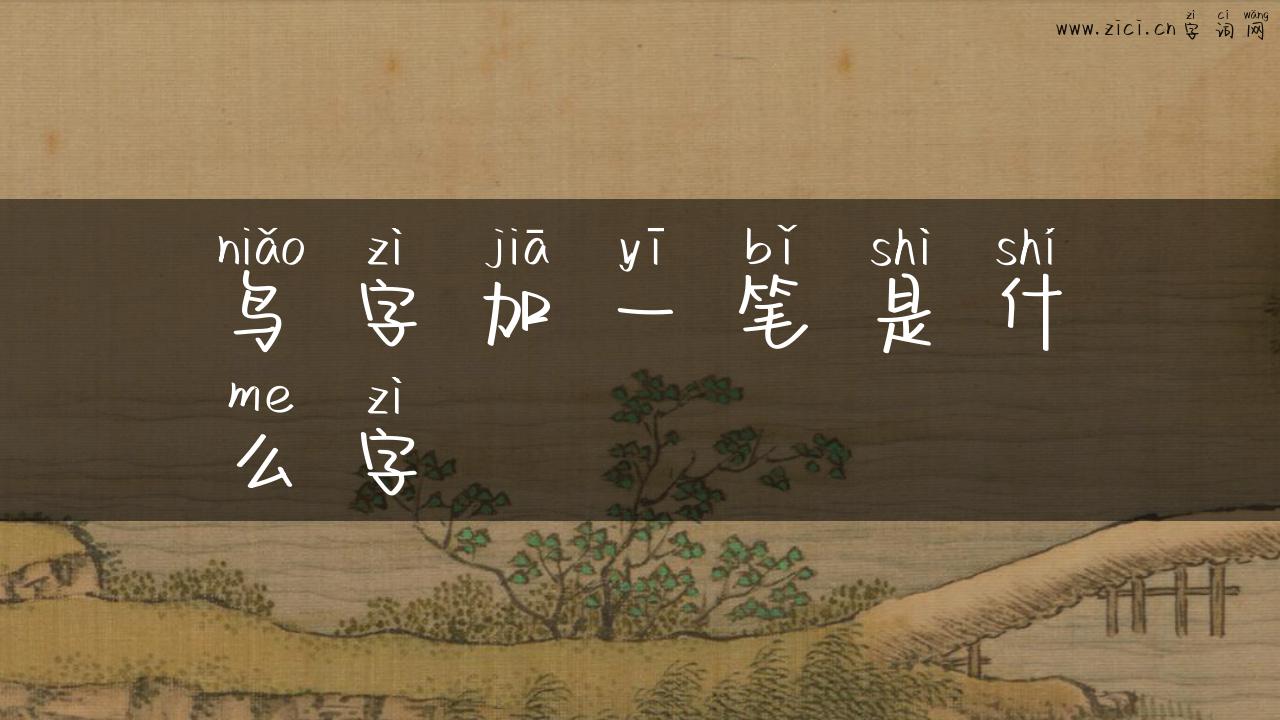 www.zici.cn zì cí wǎng
字词网
niǎo zì jiā yī bǐ shì shí
鸟字加一笔是什
me zì
么字